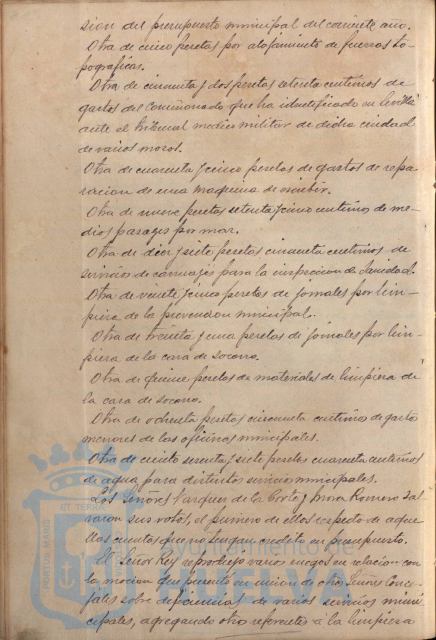 sion del presupuesto municipal del corriente año.
Otra de cinco pesetas por alojamiento de fuerzas to-
pograficas.
Otra de cincuenta y dos pesetas setenta centimos de
gastos del Comisionado que ha identificado en Sevilla
ante el tribunal medico militar de dicha ciudad
de varios mozos.
Otra de cuarenta y cinco pesetas de gastos de repa-
racion de una maquina de escribir.
Otra de nueve pesetas setenta y cinco centimos de me-
dios pasages por mar.
Otra de diez y siete pesetas cincuenta centimos de
servicios de carruajes para la inspeccion de Sanidad.
Otra de veinte y cinco pesetas de jornales por lim-
pieza de la prevencion municipal.
Otra de treinta y una pesetas de jornales por lim-
pieza de la casa de socorro.
Otra de quince pesetas de materiales de limpieza de
la casa de socorro.
Otra de ochenta pesetas cincuenta centimos de gastos
menores de las oficinas municipales.
Otra de ciento sesenta y siete pesetas cuarenta centimos
de agua para distintos servicios municipales.
Los Señores Vazquez de la Corte y Mora Romero sal-
varon sus votos, el primero de ellos respecto de aque-
llas cuentas que no tengan credito en presupuesto.
El Señor Rey reprodujo varios ruegos en relacion con
la mocion que presentó en union de otros Señores Conce-
jales sobre deficiencias de varios servicios muni-
cipales, agregando otro referentes a la limpieza
PORTUS MARIS
ET TERRAE
Ayuntamiento de
HUELVA